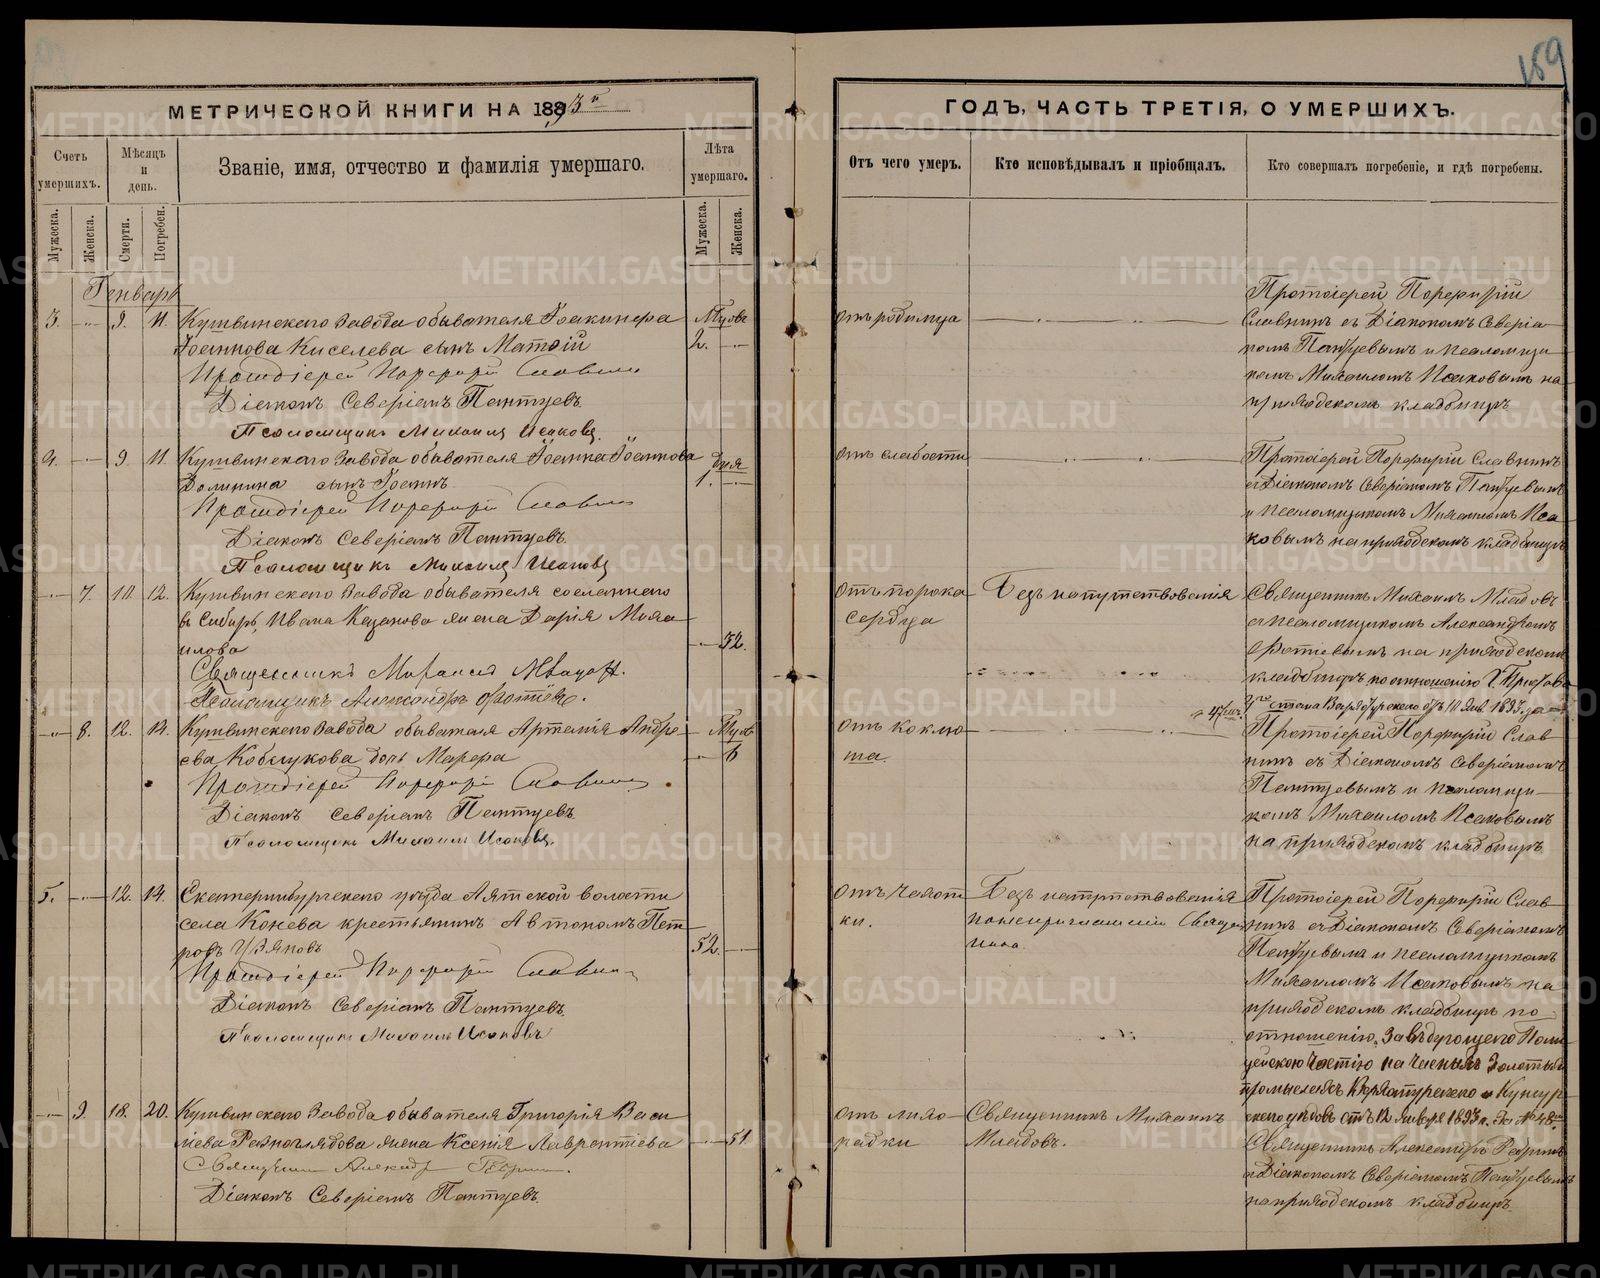 159
МЕТРИЧЕСКОЙ КНИГИ НА 1893й
ГОДЪ, ЧАСТЬ ТРЕТІЯ, О УМЕРШИХЪ.
Счетъ умершихъ.
Мѣсяцъ и день.
Званіе, имя, отчество и фамилія умершаго.
Лѣта умершаго.
Отъ чего умеръ.
Кто исповѣдывалъ и пріобщалъ.
Кто совершалъ погребеніе, и гдѣ погребены.
Мужеска.
Женска.
Смерти.
Погребен.
Мужеска.
Женска.
Генварь
3. 9. 11. Кушвинскаго Завода обывателя Іоакинфа
Іоаннова Киселева сынъ Матѳій
2.
Протоіерей Порфирій Славнинъ
Діаконъ Северіанъ Пантуевъ
Псаломщикъ Михаилъ Исаковъ.
отъ родимца
Протоіерей Порфирій
Славнинъ съ Діакономъ Северіа
номъ Пантуевымъ и псаломщи
комъ Михаиломъ Исаковымъ на
приходскомъ кладбищѣ
4. 9. 11. Кушвинскаго Завода обывателя Іоанна Іоаннова
Долинина сынъ Іоаннъ
дня
1.
Протоіерей Порфирій Славнинъ
Діаконъ Северіанъ Пантуевъ
Псаломщикъ Михаилъ Исаковъ
отъ слабости
Протоіерей Порфирій Славнинъ
съ Діакономъ Северіаномъ Пантуевымъ
и псаломщикомъ Михаиломъ Иса
ковымъ на приходскомъ кладбищѣ
7. 10. 12. Кушвинскаго Завода обывателя сосланнаго
въ Сибирь, Ивана Казакова жена Дарія Миха
илова
32.
Священникъ Михаилъ Младовъ.
Псаломщикъ Александръ Фотіевъ.
отъ порока
сердца
Безъ напутствованія
Священникъ Михаилъ Младовъ
съ псаломщикомъ Александромъ
Фотіевымъ на приходскомъ
кладбищѣ по отношенію Г. Пристава
10 Янв. 1893 г. за №
47
8. 12. 14. Кушвинскаго Завода обывателя Артемія Андре
ева Кобчукова дочь Марфа
6
Протоіерей Порфирій Славнинъ
Діаконъ Северіанъ Пантуевъ
Псаломщикъ Михаилъ Исаковъ.
отъ коклю
ша.
Протоіерей Порфирій Слав
нинъ съ Діакономъ Северіаномъ
Пантуевымъ и псаломщи
комъ Михаиломъ Исаковымъ
на приходскомъ кладбищѣ
5. 12. 14. Екатеринбургскаго уѣзда Аятской волости
села Конева крестьянинъ Автономъ Пет
ровъ
52.
Протоіерей Порфирій Славнинъ
Діаконъ Северіанъ Пантуевъ.
Псаломщикъ Михаилъ Исаковъ
отъ чахот
ки.
Безъ напутствованія
по неприглашенію Священ
ника.
Протоіерей Порфирій Слав
нинъ съ Діакономъ Северіаномъ
Пантуевымъ и псаломщикомъ
Михаиломъ Исаковымъ на
приходскомъ кладбищѣ по
отношенію Завѣдующаго Поли
цейскою частію на частныхъ Золотыхъ
промыслахъ Верхотурскаго и Кунгур
скаго уѣздовъ отъ 12 Января 1893 г. за № 48.
9. 18. 20. Кушвинскаго Завода обывателя Григорія Васи
ліева Разноглядова жена Ксенія Лаврентіева
51
Священникъ Александръ
Діаконъ Северіанъ Пантуевъ.
отъ лихо
радки
Священникъ Михаилъ
Младовъ.
Священникъ Александръ
съ Діакономъ Северіаномъ Пантуевымъ
на приходскомъ кладбищѣ
METRIKI.GASO-URAL.RU